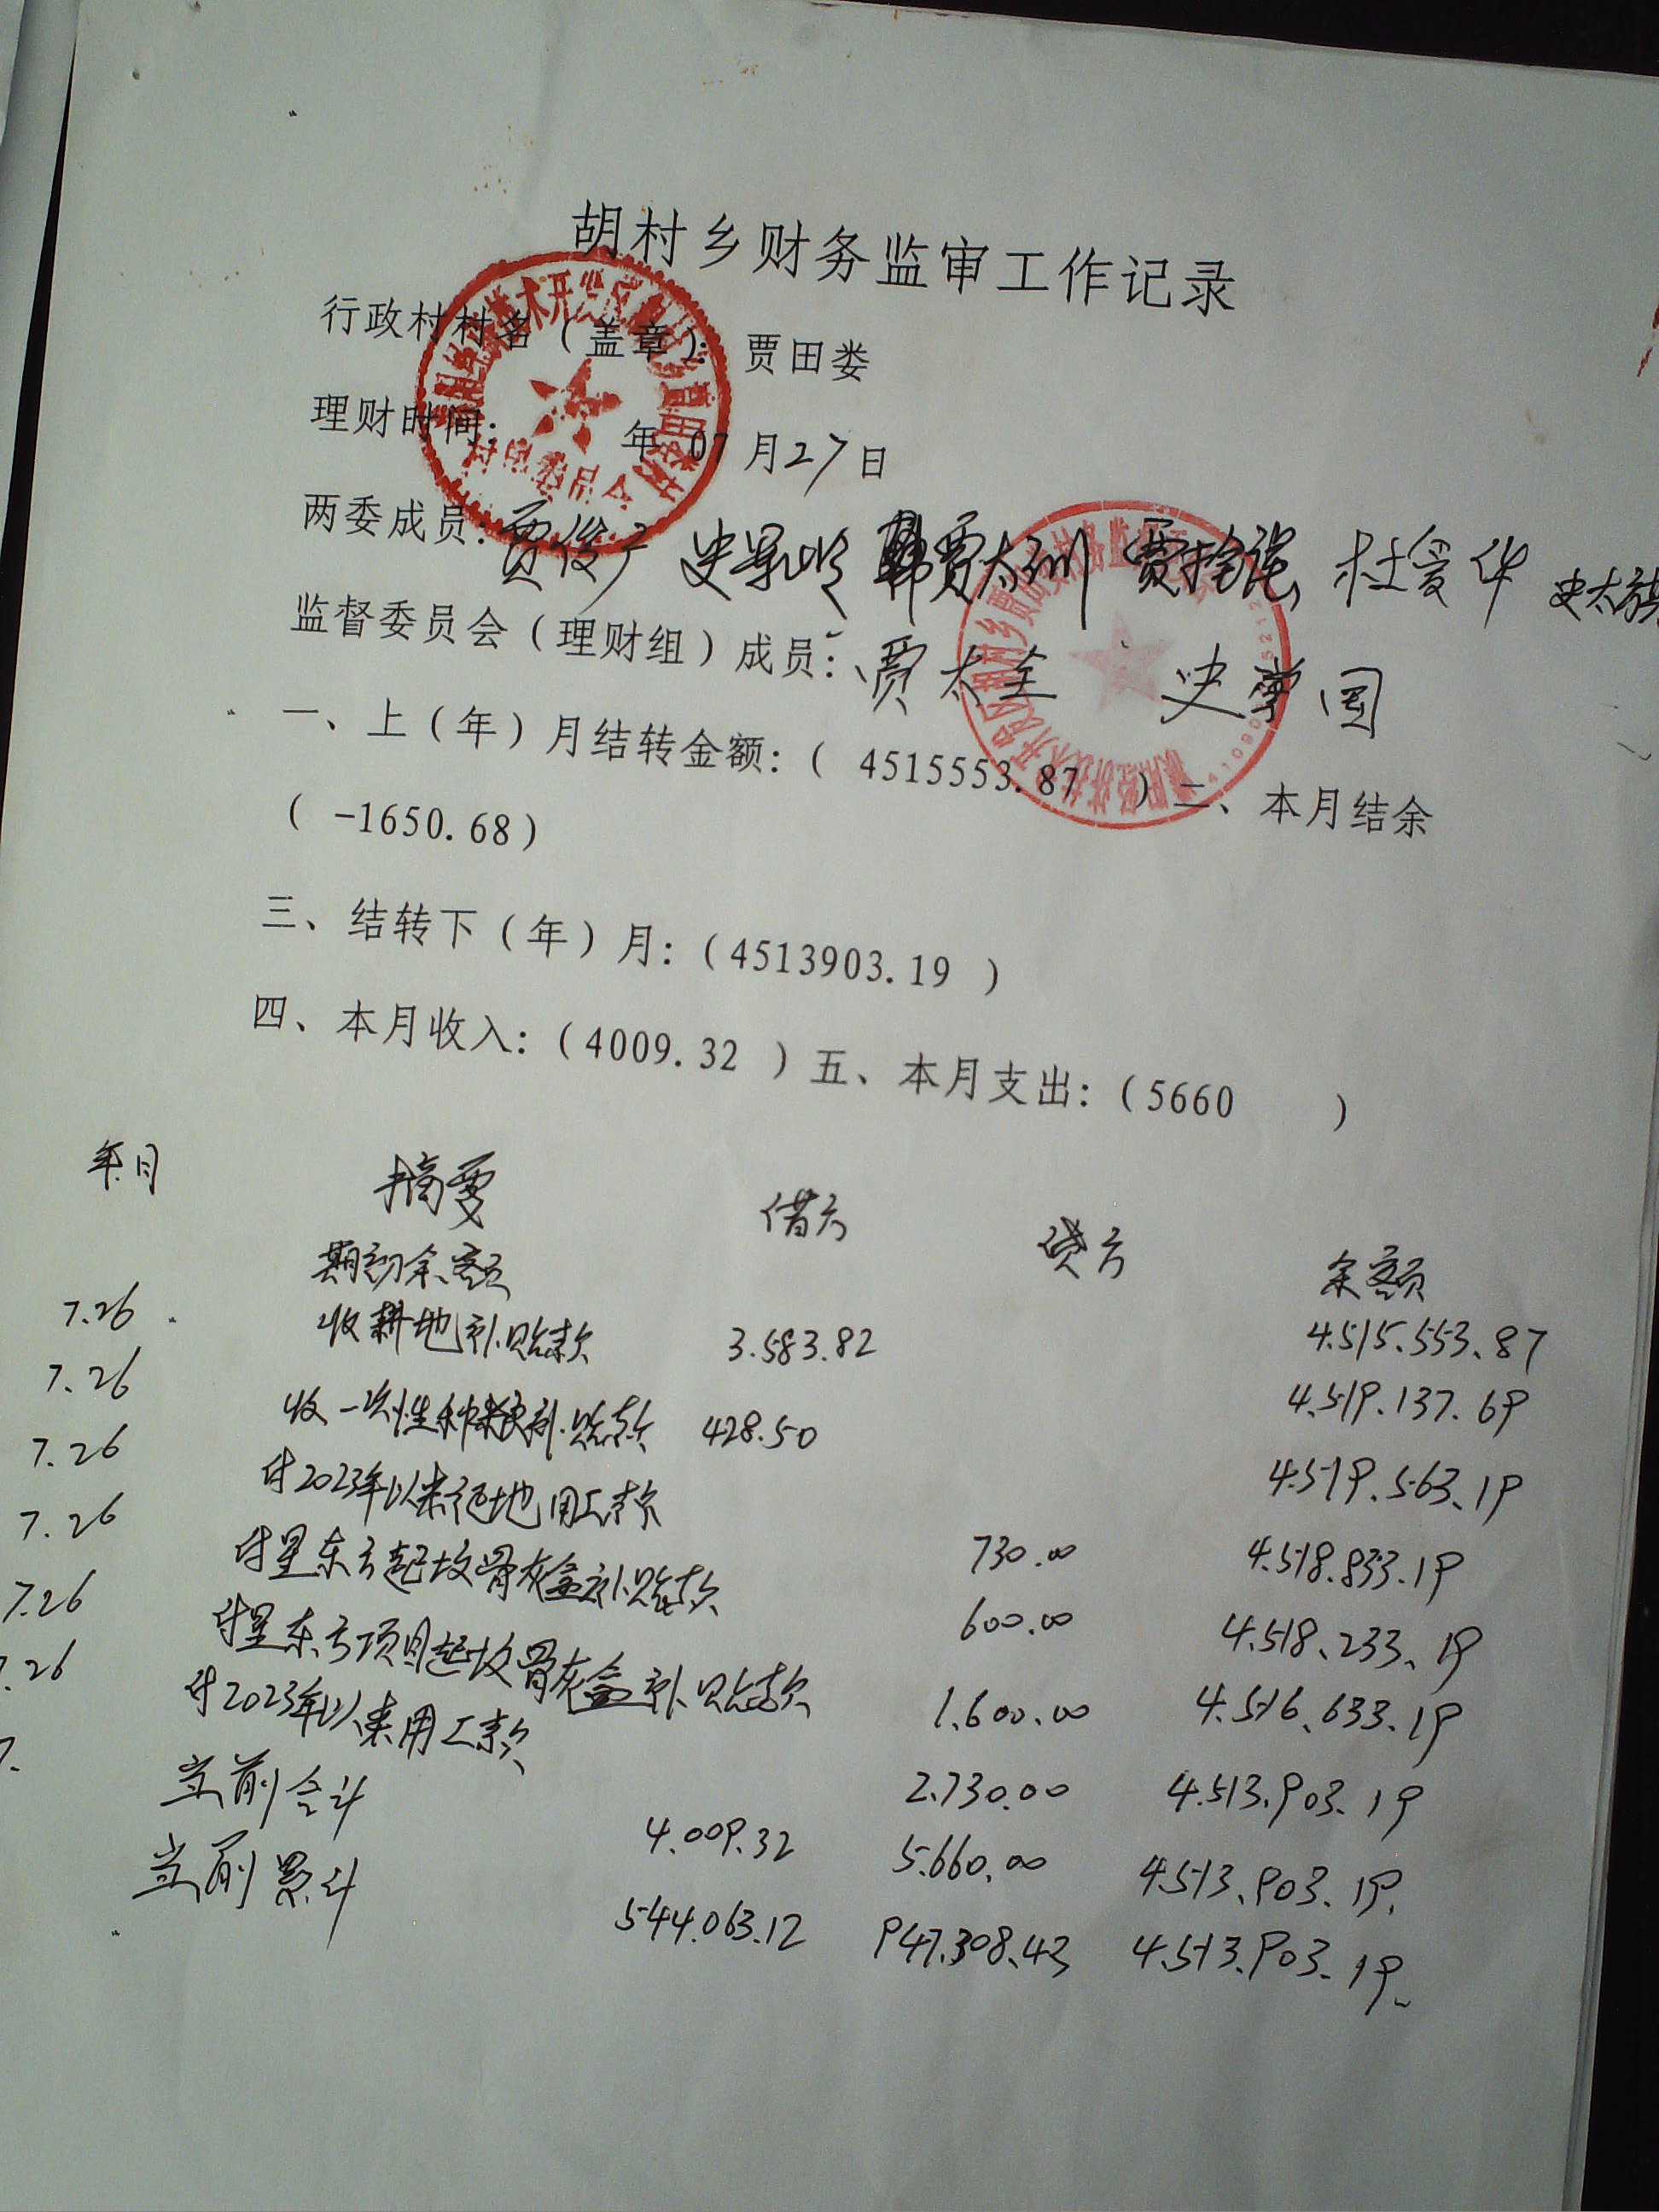 胡村乡财务监审工作记录
行政村村名（盖章）： 贾田娄
理财时间： 年 07 月27日
两委成员：贾俊广 史景岭 贾太洲 贾拴强 杜爱华 史太旗
监督委员会（理财组）成员：贾太全 史学园
一、上（年）月结转金额：（ 4515553.87 ）二、本月结余
（ -1650.68）
三、结转下（年）月：（4513903.19 ）
四、本月收入：（4009.32 ）五、本月支出：（5660 ）
年.月 摘要 借方 贷方 余额
期初余额 4.515.553.87
7.26 收耕地补贴款 3.583.82 4.519.137.69
7.26 收一次性种粮补贴款 428.50 4.519.563.19
7.26 付2023年以来征地用工款 730.00 4.518.833.19
7.26 付星东方起坟骨灰盒补贴款 600.00 4.518.233.19
7.26 付星东方项目起坟骨灰盒补贴款 1.600.00 4.516.633.19
7.26 付2023年以来用工款 2.730.00 4.513.903.19
7. 当前合计 4.009.32 5.660.00 4.513.903.19
当前累计 544.063.12 947.308.43 4.513.903.19